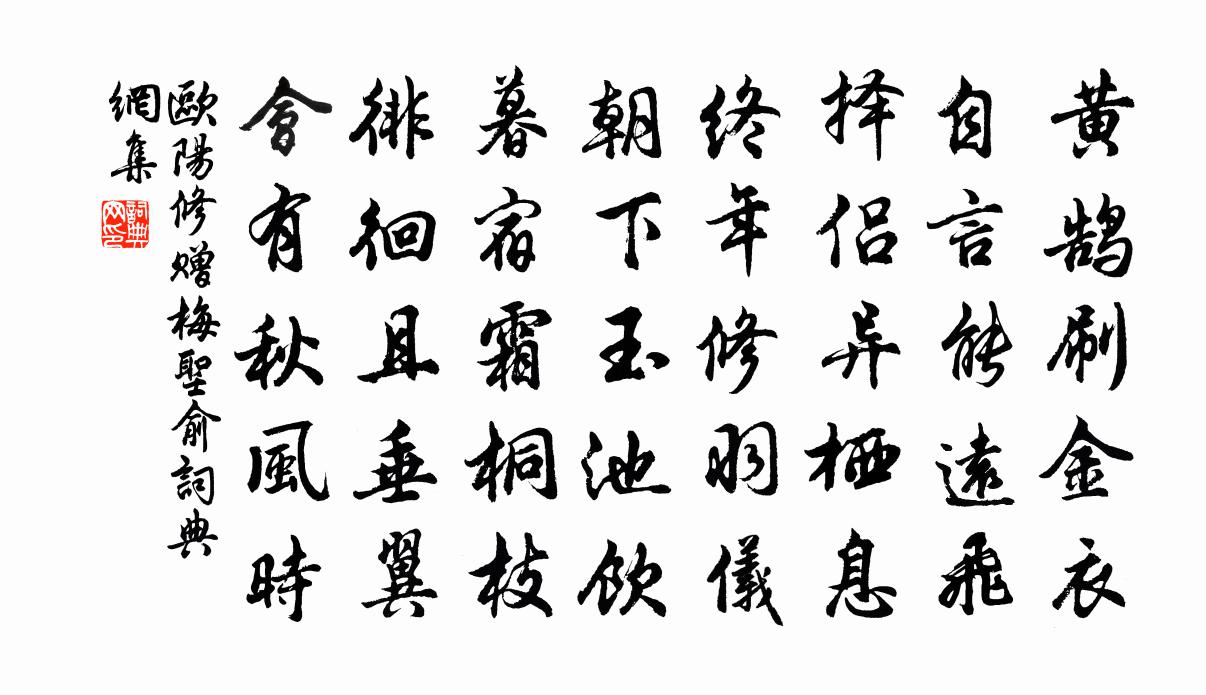 黄鹄刷金衣
自言能遠飛
择侣异栖息
终年修羽儀
朝下玉池飲
暮宿霜桐枝
徘徊且垂翼
會有秋風時
歐陽修赠梅聖俞詞典
網集
詞典
网印